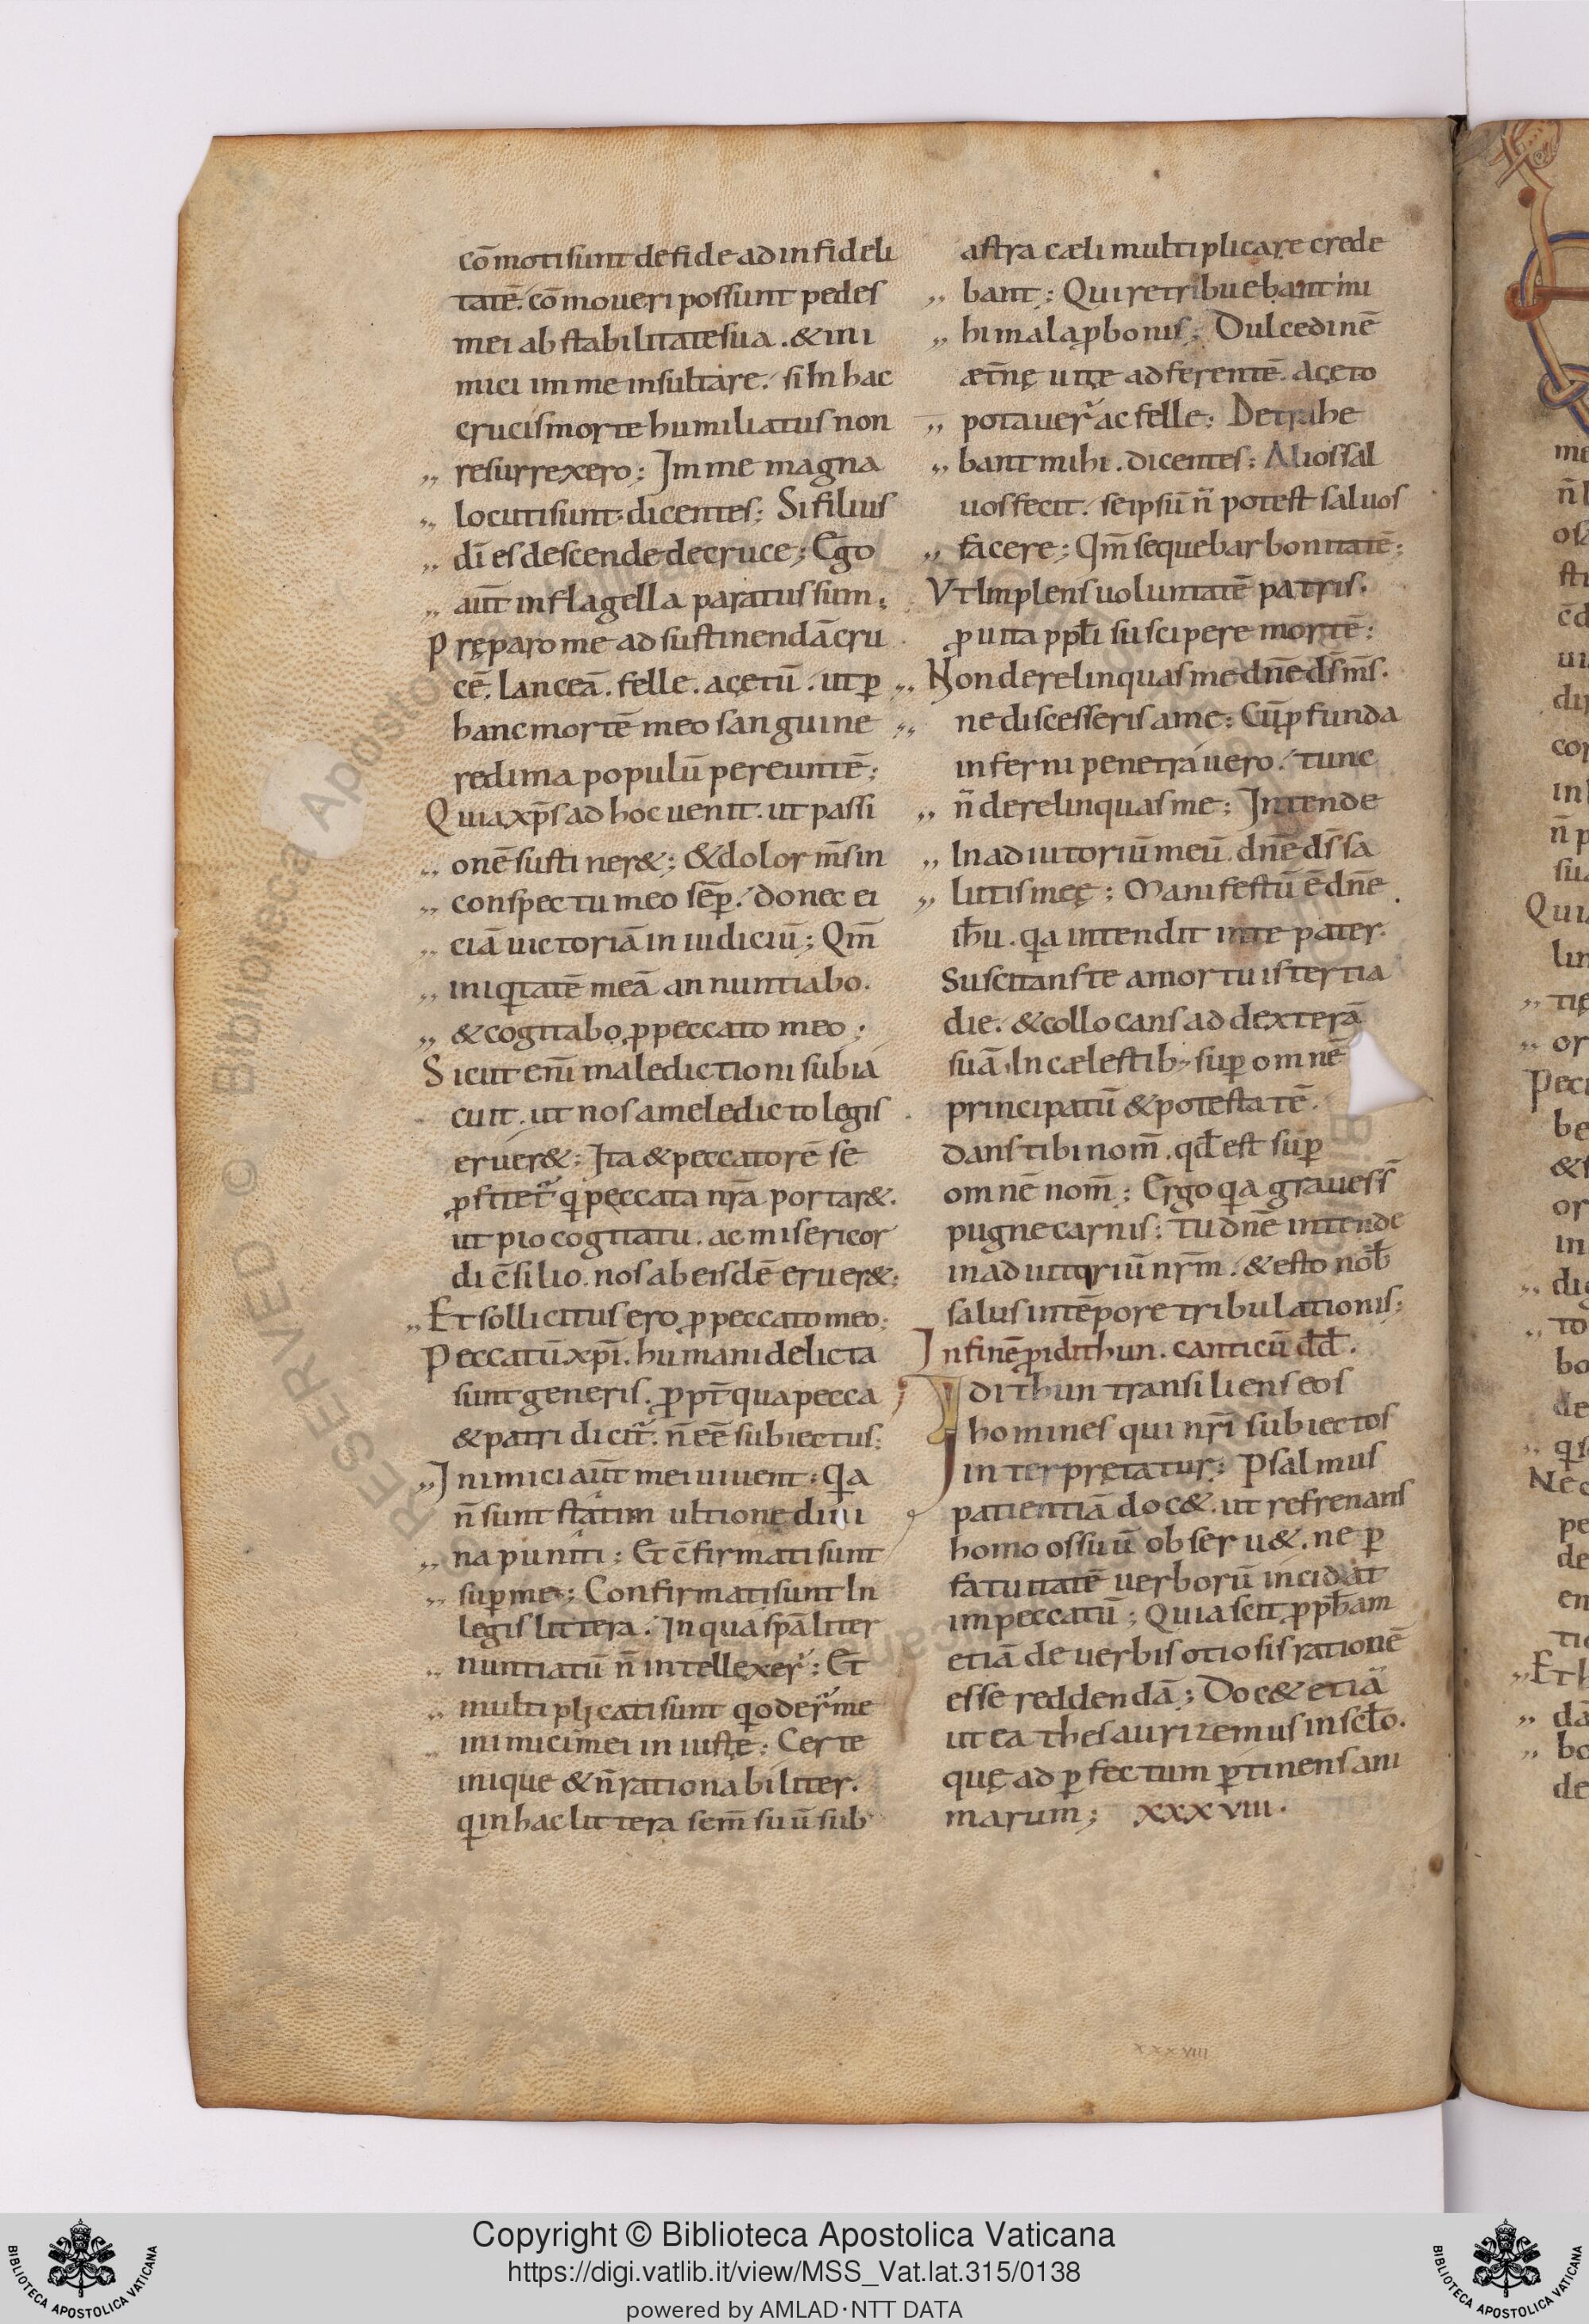 cōmoti sunt de fide ad infideli
tatē. cōmoueri possunt pedes
mei ab stabilitate sua. & ini
mici in me insultare. si In hac
crucis morte humiliatus non
„ resurrexero; In me magna
„ locuti sunt. dicentes; Si filius
„ dī es descende de cruce; Ego
„ aūt in flagella paratus sum;
Pręparo me ad sustinendā cru
cē. lanceā. felle. acętū. ut ꝑ
hanc mortē meo sanguine
redima populū pereuntē;
Quia xp̄s ad hoc uenit. ut passi
„ onē sustiner&; & dolor m̄s in
„ conspectu meo sēꝑ. donec ei
„ ciā uictoriā in iudiciū; Qm̄
„ iniqͥtatē meā annuntiabo.
„ & cogitabo ꝓ peccato meo;
Sicut eni̅ maledictioni subia
cuit. ut nos a meledicto legis
eruer&; Ita & peccatorē se
ꝓfitet᷑ qͥ peccata nr̄a portar&.
ut pio cogitatu. ac misericor
di c̄silio. nos ab eisdē eruer&;
„ Et sollicitus ero ꝓ peccato meo;
Peccatū xp̄i. humani delicta
sunt generis. ꝓpt̄ qua pecca
& patri dicit᷑. n̄ eē subiectus;
„ Inimici aūt mei uiuent. qͥa
n̄ sunt statim ultione diui
„ na puniti; Et c̄firmati sunt
„ suꝑ me; Confirmati sunt In
legis littera. In qua spāliter
„ nuntiatū n̄ intellexer᷑; Et
„ multiplicati sunt qͥ oder᷑ me
„ inimici mei in iustę; Certe
inique & n̄ rationabiliter.
qͥ in hac littera sem̄ suū sub
astra cæli multiplicare crede
„ bant; Qui retribuebant mi
„ hi mala ꝓ bonis; Dulcedinē
æt̄nę uitę adferentē. acęto
„ potauer᷑ ac felle; Detrahe
„ bant mihi. dicentes; Alios sal
uos fecit. se ipsū n̄ potest saluos
„ facere; Qm̄ sequebar bonitatē;
Vt Implens uoluntatē patris.
ꝓ uita ppl̄i suscipere mortē;
„ Non derelinquas me dn̄e ds̄ m̄s.
„ ne discesseris a me; Cū ꝓfunda
inferni penetráuero. tunc
„ n̄ derelinquas me; Intende
„ In adiutoriū meū. dn̄e ds̄ sa
„ lutis meę; Manifestū ē dn̄e
ih̄u. qͥa intendit in te pater.
Suscitans te a mortuis tertia
die. & collocans ad dexterā
suā. In cælestib; suꝑ omnē
principatū & potestatē.
Dans tibi nom̄. qd̄ est suꝑ
omnē nom̄; Ergo qͥa graues s̄
pugne carnis; Tu dn̄e intende
in adiutoriū nr̄m. & esto nōb̄
salus in tēpore tribulationis;
In finē ꝓ idithun. canticū dd̄.
Idithun transiliens eos
homines qui nr̄i subiectos
interprętatur; Psalmus
patientiā doc&. ut refrenans
homo ossuū obseru&. ne ꝑ
fatuitatē uerborū incidat
im peccatū; Quia scit ꝓph̄am
etiā de uerbis otiosis rationē
esse reddendā; Doc& etiā
ut ea thesaurizemus in scl̄o.
quę ad ꝑfectum ꝑtinens ani
marum; xxxviii.
xxxviii
Copyright © Biblioteca Apostolica Vaticana
https://digi.vatlib.it/view/MSS_Vat.lat.315/0138
powered by AMLAD·NTT DATA
BIBLIOTECA APOSTOLICA VATICANA
BIBLIOTECA APOSTOLICA VATICANA